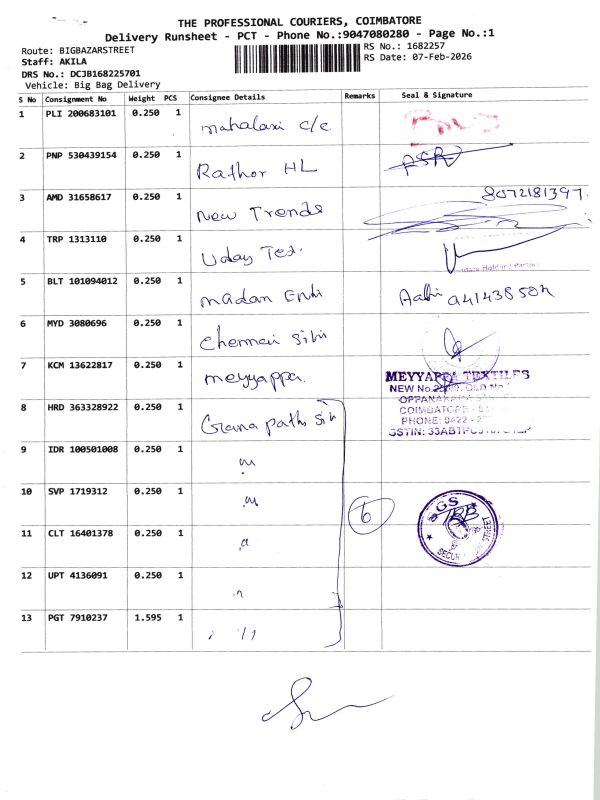 THE PROFESSIONAL COURIERS, COIMBATORE
Delivery Runsheet - PCT - Phone No.:9047080280 - Page No.:1
Route: BIGBAZARSTREET
RS No.: 1682257
Staff: AKILA
RS Date: 07-Feb-2026
DRS No.: DCJB168225701
Vehicle: Big Bag Delivery
S No Consignment No Weight PCS Consignee Details Remarks Seal & Signature
1 PLI 200683101 0.250 1 mahalaxi c/c
2 PNP 530439154 0.250 1 Rathor HL
3 AMD 31658617 0.250 1 New Trends 8072181397.
4 TRP 1313110 0.250 1 Uday Tex.
5 BLT 101094012 0.250 1 madan
6 MYD 3080696 0.250 1 chennai
7 KCM 13622817 0.250 1 meyyappa.
MEYYAPPA TEXTILES
NEW No.
COIMBATORE
PHONE: 0422
GSTIN:
8 HRD 363328922 0.250 1
9 IDR 100501008 0.250 1
10 SVP 1719312 0.250 1 6
SGS
11 CLT 16401378 0.250 1
12 UPT 4136091 0.250 1
13 PGT 7910237 1.595 1